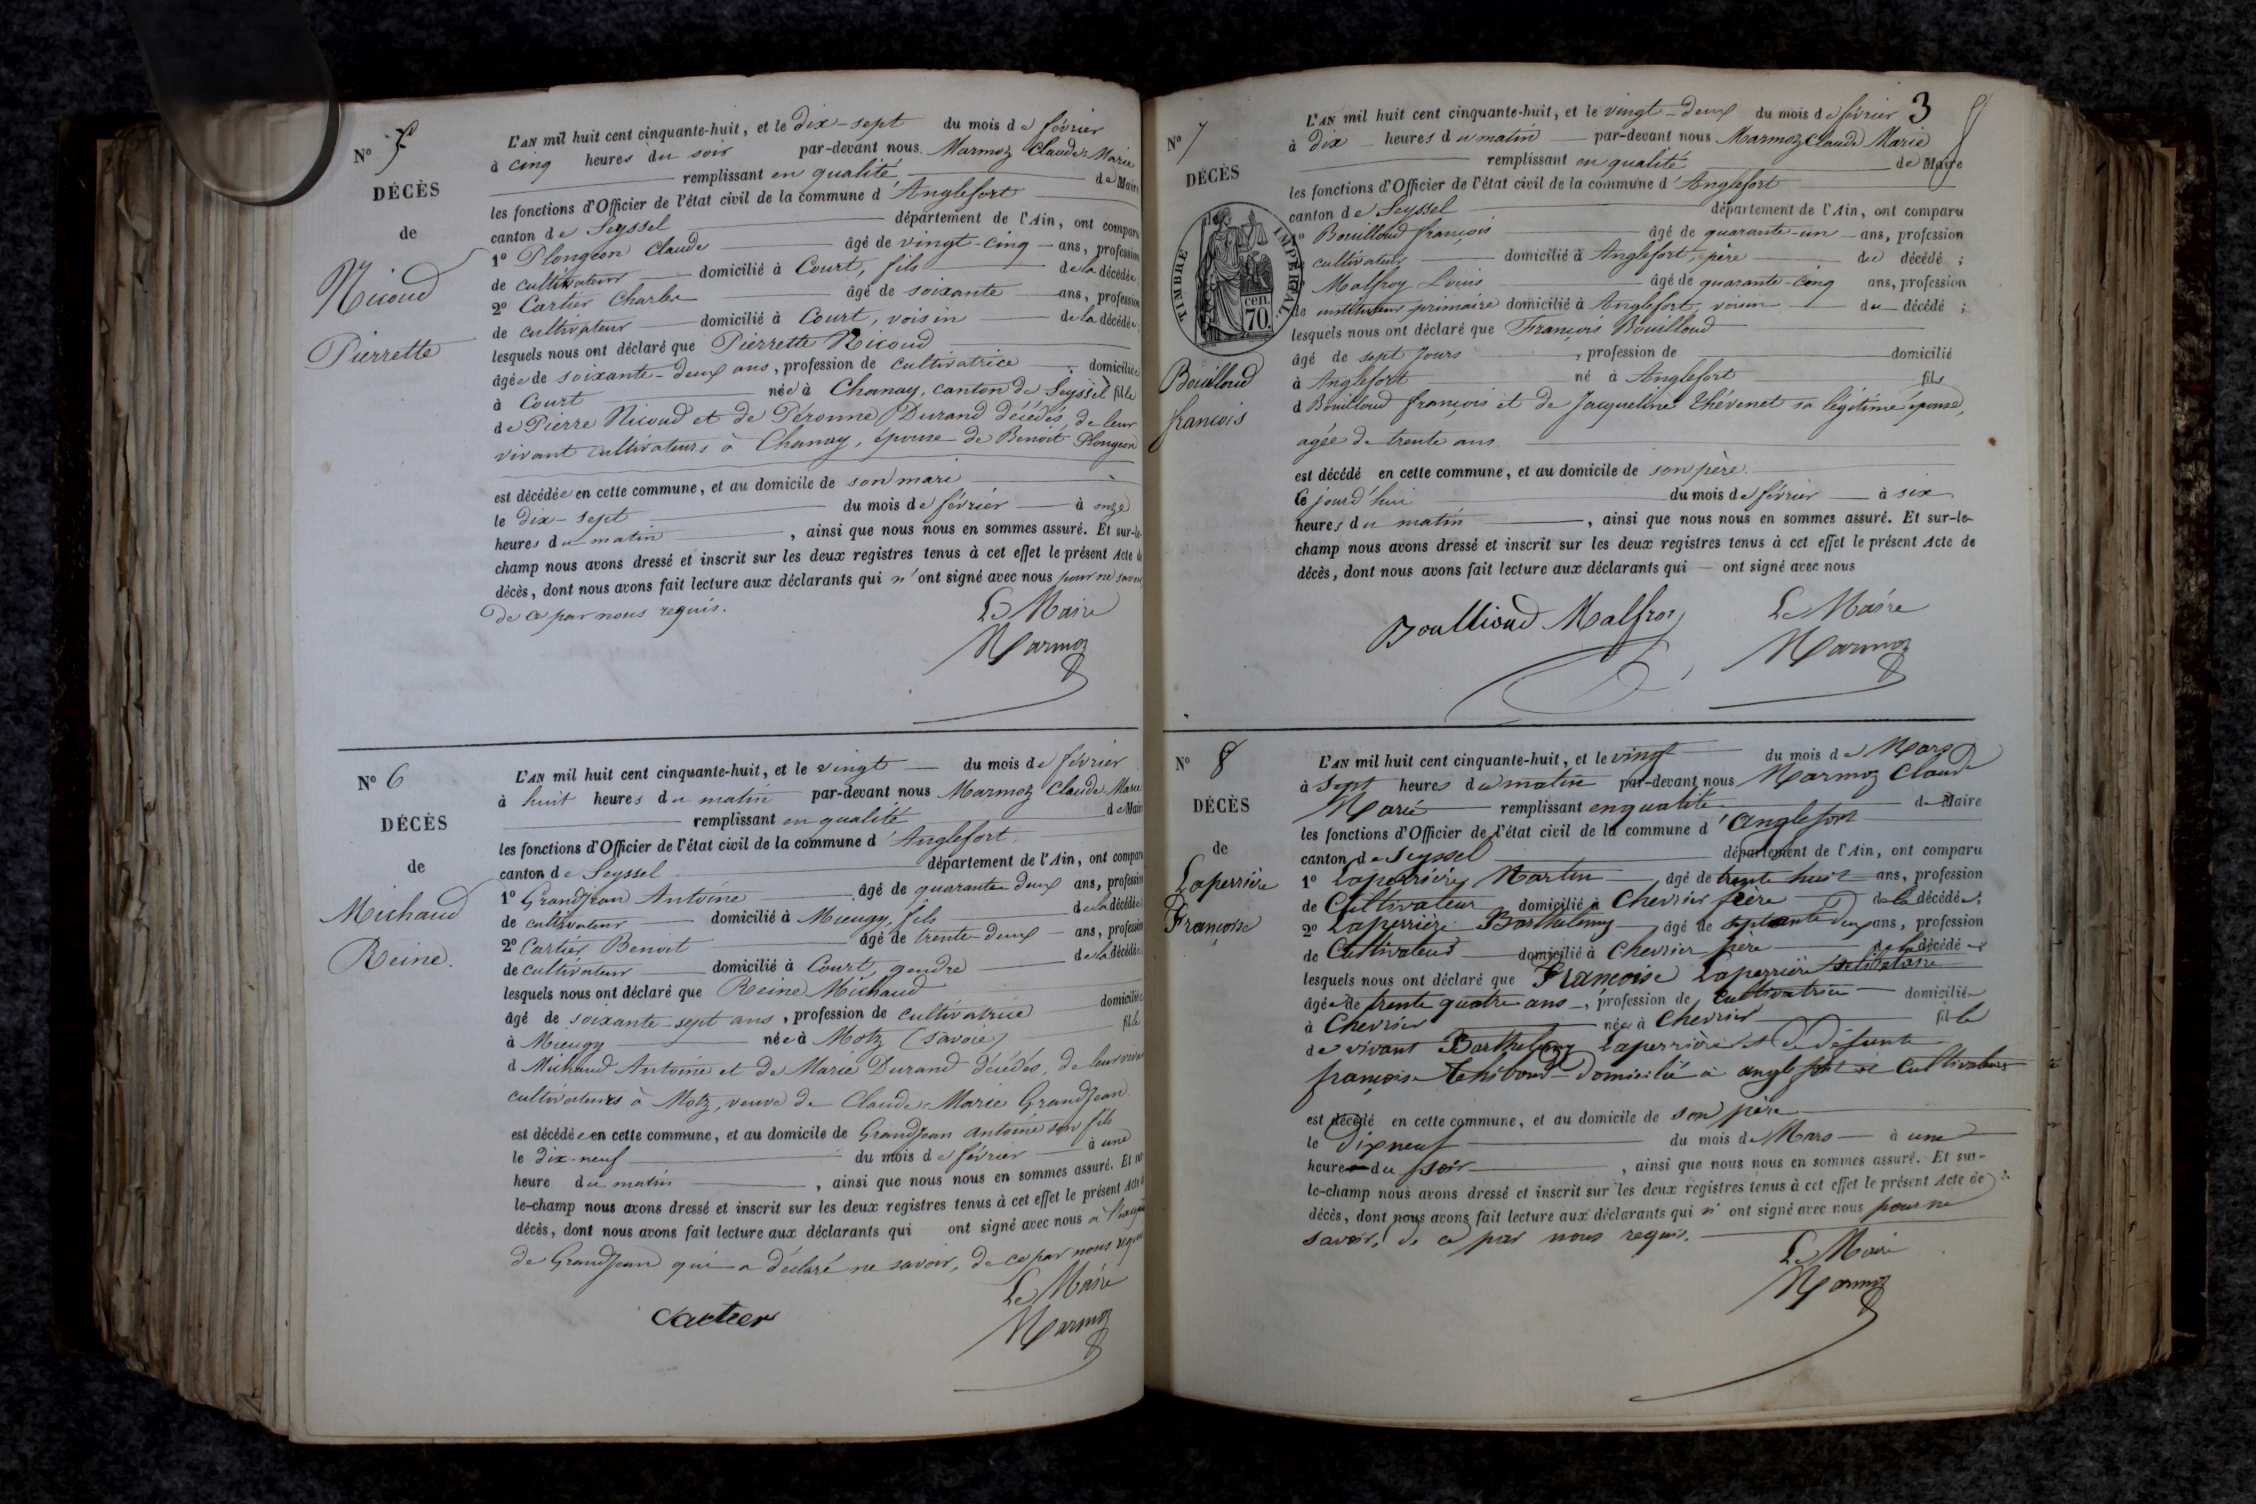 N° 5
DÉCÈS
de
Nicoud
Pierrette
L'AN mil huit cent cinquante-huit, et le dix-sept du mois de février
à cinq heures du soir par-devant nous Marmoz Claude Marie
remplissant en qualité de Maire
les fonctions d'Officier de l'état civil de la commune d'Anglefort
canton de Seyssel département de l'Ain, ont comparu
1° Plongeon Claude âgé de vingt-cinq ans, profession
de cultivateur domicilié à Court, fils de la décédée
2° Cartier Charles âgé de soixante ans, profession
de cultivateur domicilié à Court, voisin de la décédée
lesquels nous ont déclaré que Pierrette Nicoud
âgée de soixante-deux ans, profession de cultivatrice domiciliée
à Court née à Chanay, canton de Seyssel fille
de Pierre Nicoud et de Péronne Durand décédés, de leur
vivant cultivateurs à Chanay, épouse de Benoit Plongeon
est décédée en cette commune, et au domicile de son mari
le dix-sept du mois de février à onze
heures du matin, ainsi que nous nous en sommes assuré. Et sur-le-
champ nous avons dressé et inscrit sur les deux registres tenus à cet effet le présent Acte de
décès, dont nous avons fait lecture aux déclarants qui n'ont signé avec nous pour ne savoir
de ce par nous requis.
Le Maire
Marmoz
N° 6
DÉCÈS
de
Michaud
Reine.
L'AN mil huit cent cinquante-huit, et le vingt du mois de février
à huit heures du matin par-devant nous Marmoz Claude Marie
remplissant en qualité de Maire
les fonctions d'Officier de l'état civil de la commune d'Anglefort
canton de Seyssel département de l'Ain, ont comparu
1° Grandjean Antoine âgé de quarante deux ans, profession
de cultivateur domicilié à Mieugy, fils de la décédée
2° Cartier Benoit âgé de trente-deux ans, profession
de cultivateur domicilié à Court, gendre de la décédée
lesquels nous ont déclaré que Reine Michaud
âgé de soixante-sept ans, profession de cultivatrice domiciliée
à Mieugy née à Motz (Savoie) fille
d Michaud Antoine et de Marie Durand décédés, de leur vivant
cultivateurs à Motz, veuve de Claude Marie Grandjean
est décédée en cette commune, et au domicile de Grandjean Antoine son fils
le dix-neuf du mois de février à une
heure du matin, ainsi que nous nous en sommes assuré. Et sur-
le-champ nous avons dressé et inscrit sur les deux registres tenus à cet effet le présent Acte de
décès, dont nous avons fait lecture aux déclarants qui ont signé avec nous à
de Grandjean qui a déclaré ne savoir, de ce par nous requis
Le Maire
Cartier
Marmoz
3
N° 7
DÉCÈS
TIMBRE IMPÉRIAL.
cen.
70.
Bouilloud
françois
L'AN mil huit cent cinquante-huit, et le vingt-deux du mois de février
à dix heures du matin par-devant nous Marmoz Claude Marie
remplissant en qualité de Maire
les fonctions d'Officier de l'état civil de la commune d'Anglefort
canton de Seyssel département de l'Ain, ont comparu
1° Bouilloud françois âgé de quarante-un ans, profession
cultivateur domicilié à Anglefort, père du décédé;
Malfroy Louis âgé de quarante-cinq ans, profession
de instituteur primaire domicilié à Anglefort, voisin du décédé;
lesquels nous ont déclaré que François Bouilloud
âgé de sept jours, profession de domicilié
à Anglefort né à Anglefort fils
d Bouilloud françois et de Jacqueline Thévenet sa légitime épouse,
agée de trente ans
est décédé en cette commune, et au domicile de son père
Ce jourd'hui du mois de février à six
heures du matin, ainsi que nous nous en sommes assuré. Et sur-le-
champ nous avons dressé et inscrit sur les deux registres tenus à cet effet le présent Acte de
décès, dont nous avons fait lecture aux déclarants qui — ont signé avec nous
Bouilloud Malfroy
Le Maire
Marmoz
N° 8
DÉCÈS
de
Laperrière
Françoise
L'AN mil huit cent cinquante-huit, et le vingt du mois de Mars
à sept heures du matin par-devant nous Marmoz Claude
Marie remplissant en qualité de Maire
les fonctions d'Officier de l'état civil de la commune d'Anglefort
canton de Seyssel département de l'Ain, ont comparu
1° Laperrière Martin âgé de trente huit ans, profession
de Cultivateur domicilié à Chevrier frère de la décédée;
2° Laperrière Barthelemy âgé de septante deux ans, profession
de Cultivateur domicilié à Chevrier père de la décédée
lesquels nous ont déclaré que Françoise Laperrière
âgée de trente quatre ans, profession de Cultivatrice domiciliée
à Chevrier née à Chevrier fille
de vivant Barthelemy Laperrière et de défunte
françoise Thiboud domicilié à anglefort et Cultivateurs
est décédé en cette commune, et au domicile de son père
le Dix neuf du mois de Mars à une
heure du soir, ainsi que nous nous en sommes assuré. Et sur-
le-champ nous avons dressé et inscrit sur les deux registres tenus à cet effet le présent Acte de
décès, dont nous avons fait lecture aux déclarants qui n'ont signé avec nous pour ne
savoir, de ce par nous requis.
Le Maire
Marmoz